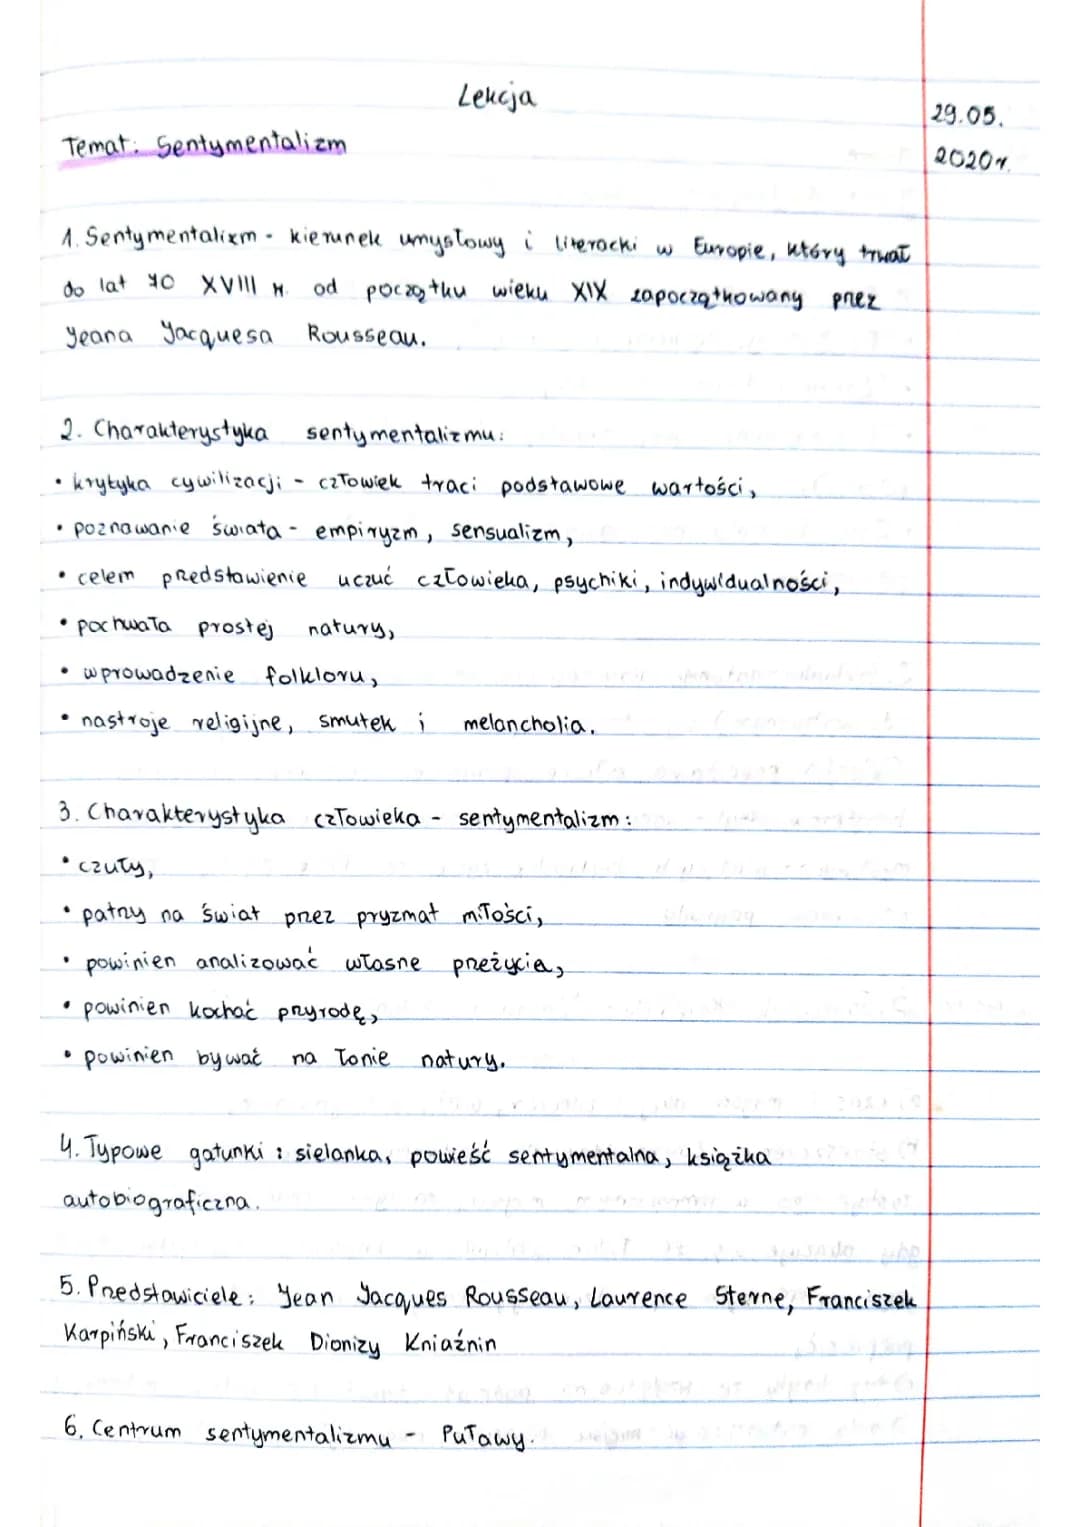 Lekcja
29.05.
2020r.
Temat: Sentymentalizm
1. Sentymentalizm - kierunek umysłowy i literacki w Europie, który trwał
do lat 70 XVIII w. od początku wieku XIX zapoczątkowany przez
Jeana Jacquesa Rousseau.
2. Charakterystyka sentymentalizmu:
• krytyka cywilizacji - człowiek traci podstawowe wartości,
• poznawanie świata - empiryzm, sensualizm,
• celem przedstawienie uczuć człowieka, psychiki, indywidualności,
• pochwała prostej natury,
• wprowadzenie folkloru,
• nastroje religijne, smutek i melancholia.
3. Charakterystyka człowieka - sentymentalizm:
• czuły,
• patrzy na świat przez pryzmat miłości,
• powinien analizować własne przeżycia,
• powinien kochać przyrodę,
• powinien bywać na łonie natury.
4. Typowe gatunki: sielanka, powieść sentymentalna, książka
autobiograficzna.
5. Przedstawiciele: Jean Jacques Rousseau, Laurence Sterne, Franciszek
Karpiński, Franciszek Dionizy Kniaźnin
6. Centrum sentymentalizmu - Puławy.